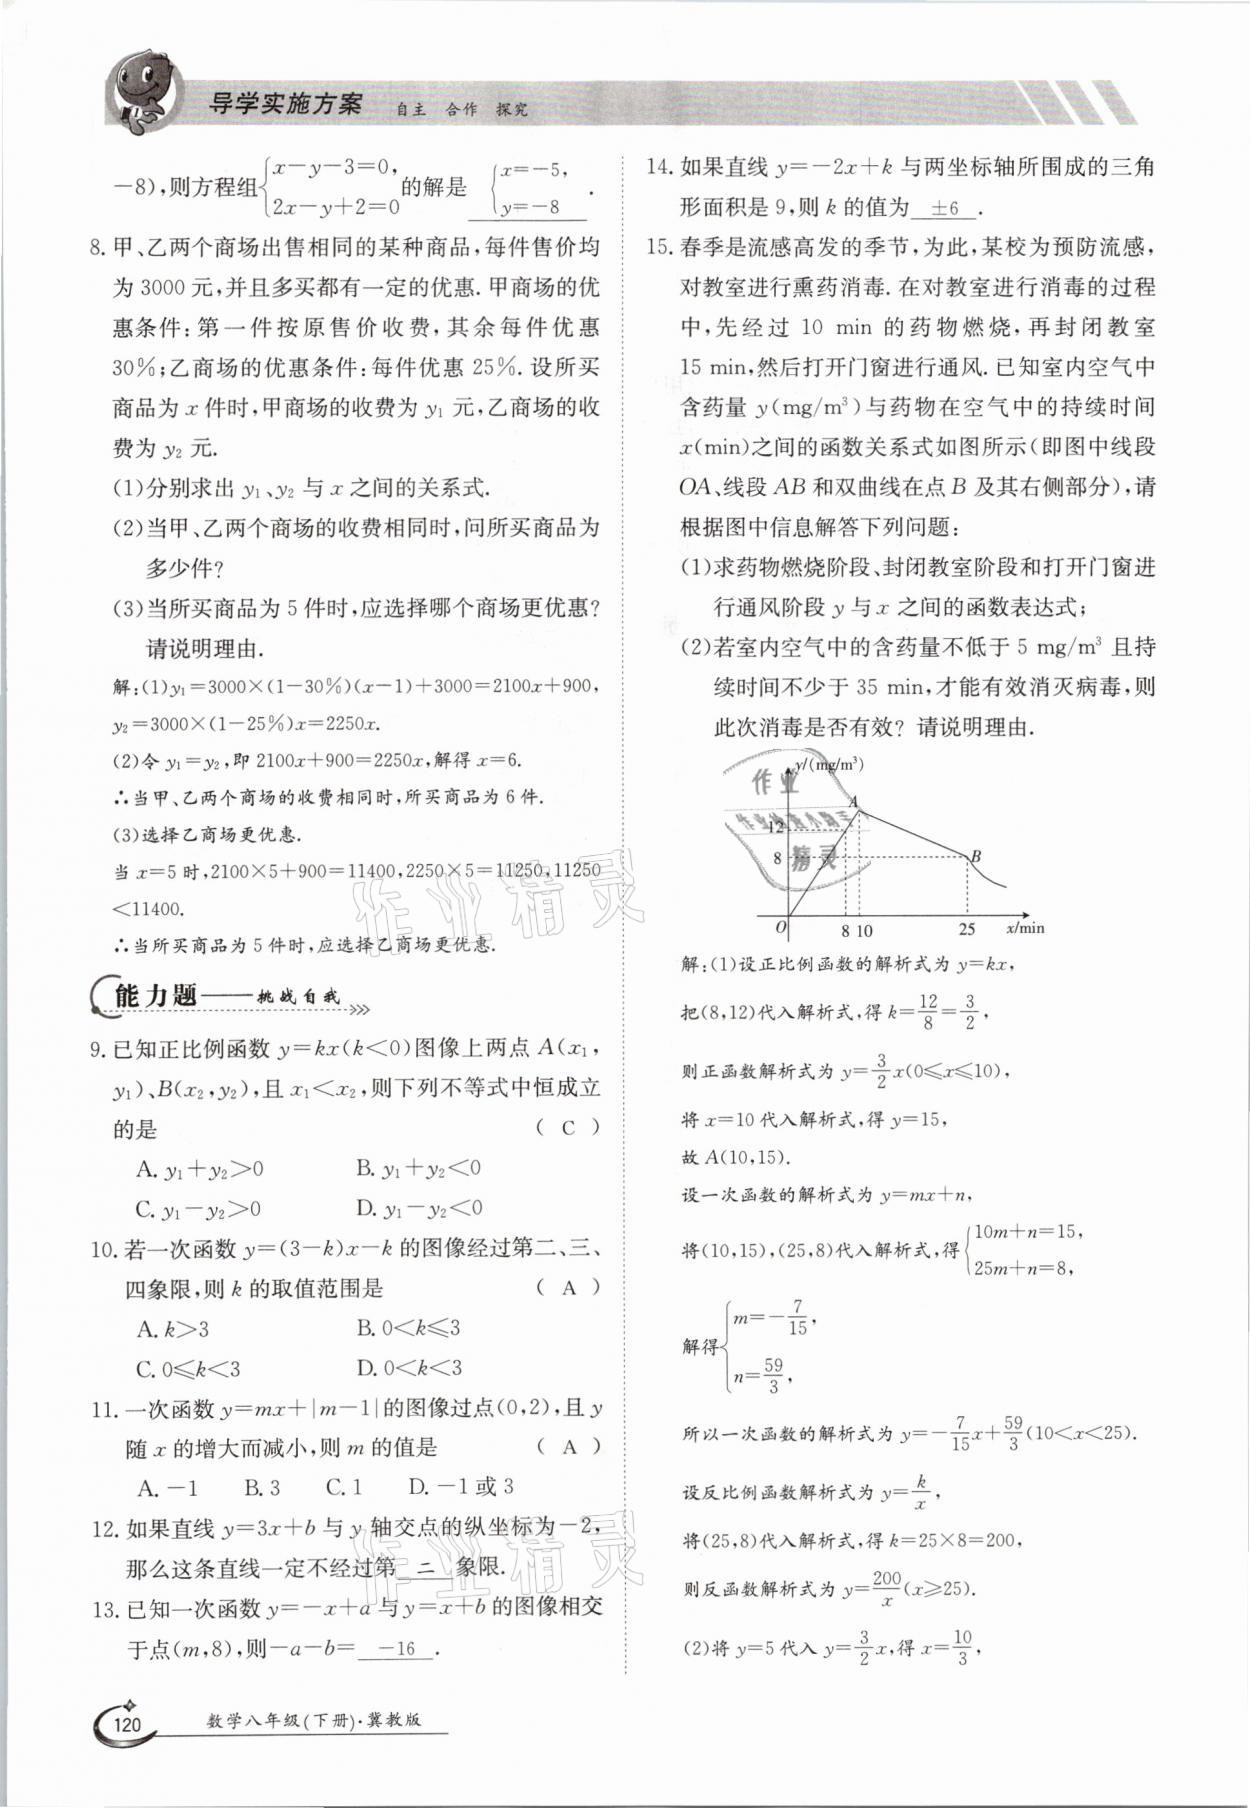 导学实施方案 自主 合作 探究
-8),则方程组{x-y-3=0, 2x-y+2=0 的解是 {x=-5, y=-8 .
8. 甲、乙两个商场出售相同的某种商品,每件售价均
为 3000 元,并且多买都有一定的优惠. 甲商场的优
惠条件:第一件按原售价收费,其余每件优惠
30%;乙商场的优惠条件:每件优惠 25%. 设所买
商品为 x 件时,甲商场的收费为 y₁ 元,乙商场的收
费为 y₂ 元.
(1)分别求出 y₁、y₂ 与 x 之间的关系式.
(2)当甲、乙两个商场的收费相同时,问所买商品为
多少件?
(3)当所买商品为 5 件时,应选择哪个商场更优惠?
请说明理由.
解:(1)y₁=3000×(1-30%)(x-1)+3000=2100x+900,
y₂=3000×(1-25%)x=2250x.
(2)令 y₁=y₂,即 2100x+900=2250x,解得 x=6.
∴当甲、乙两个商场的收费相同时,所买商品为 6 件.
(3)选择乙商场更优惠.
当 x=5 时,2100×5+900=11400,2250×5=11250,11250
<11400.
∴当所买商品为 5 件时,应选择乙商场更优惠.
能力题——挑战自我
9. 已知正比例函数 y=kx(k<0)图像上两点 A(x₁,
y₁)、B(x₂,y₂),且 x₁<x₂,则下列不等式中恒成立
的是 ( C )
A. y₁+y₂>0 B. y₁+y₂<0
C. y₁-y₂>0 D. y₁-y₂<0
10. 若一次函数 y=(3-k)x-k 的图像经过第二、三、
四象限,则 k 的取值范围是 ( A )
A. k>3 B. 0<k≤3
C. 0≤k<3 D. 0<k<3
11. 一次函数 y=mx+|m-1|的图像过点(0,2),且 y
随 x 的增大而减小,则 m 的值是 ( A )
A. -1 B. 3 C. 1 D. -1 或 3
12. 如果直线 y=3x+b 与 y 轴交点的纵坐标为-2,
那么这条直线一定不经过第 二 象限.
13. 已知一次函数 y=-x+a 与 y=x+b 的图像相交
于点(m,8),则-a-b= -16 .
14. 如果直线 y=-2x+k 与两坐标轴所围成的三角
形面积是 9,则 k 的值为 ±6 .
15. 春季是流感高发的季节,为此,某校为预防流感,
对教室进行熏药消毒. 在对教室进行消毒的过程
中,先经过 10 min 的药物燃烧,再封闭教室
15 min,然后打开门窗进行通风. 已知室内空气中
含药量 y(mg/m³)与药物在空气中的持续时间
x(min)之间的函数关系式如图所示(即图中线段
OA、线段 AB 和双曲线在点 B 及其右侧部分),请
根据图中信息解答下列问题:
(1)求药物燃烧阶段、封闭教室阶段和打开门窗进
行通风阶段 y 与 x 之间的函数表达式;
(2)若室内空气中的含药量不低于 5 mg/m³ 且持
续时间不少于 35 min,才能有效消灭病毒,则
此次消毒是否有效? 请说明理由.
y/(mg/m³)
A
12
8
B
O 8 10 25 x/min
解:(1)设正比例函数的解析式为 y=kx,
把(8,12)代入解析式,得 k=12/8=3/2,
则正函数解析式为 y=3/2x(0≤x≤10),
将 x=10 代入解析式,得 y=15,
故 A(10,15).
设一次函数的解析式为 y=mx+n,
将(10,15),(25,8)代入解析式,得{10m+n=15, 25m+n=8,
解得{m=-7/15, n=59/3,
所以一次函数的解析式为 y=-7/15x+59/3(10<x<25).
设反比例函数解析式为 y=k/x,
将(25,8)代入解析式,得 k=25×8=200,
则反函数解析式为 y=200/x(x≥25).
(2)将 y=5 代入 y=3/2x,得 x=10/3,
120 数学八年级(下册)·冀教版
作业精灵
作业精灵
作业
精灵